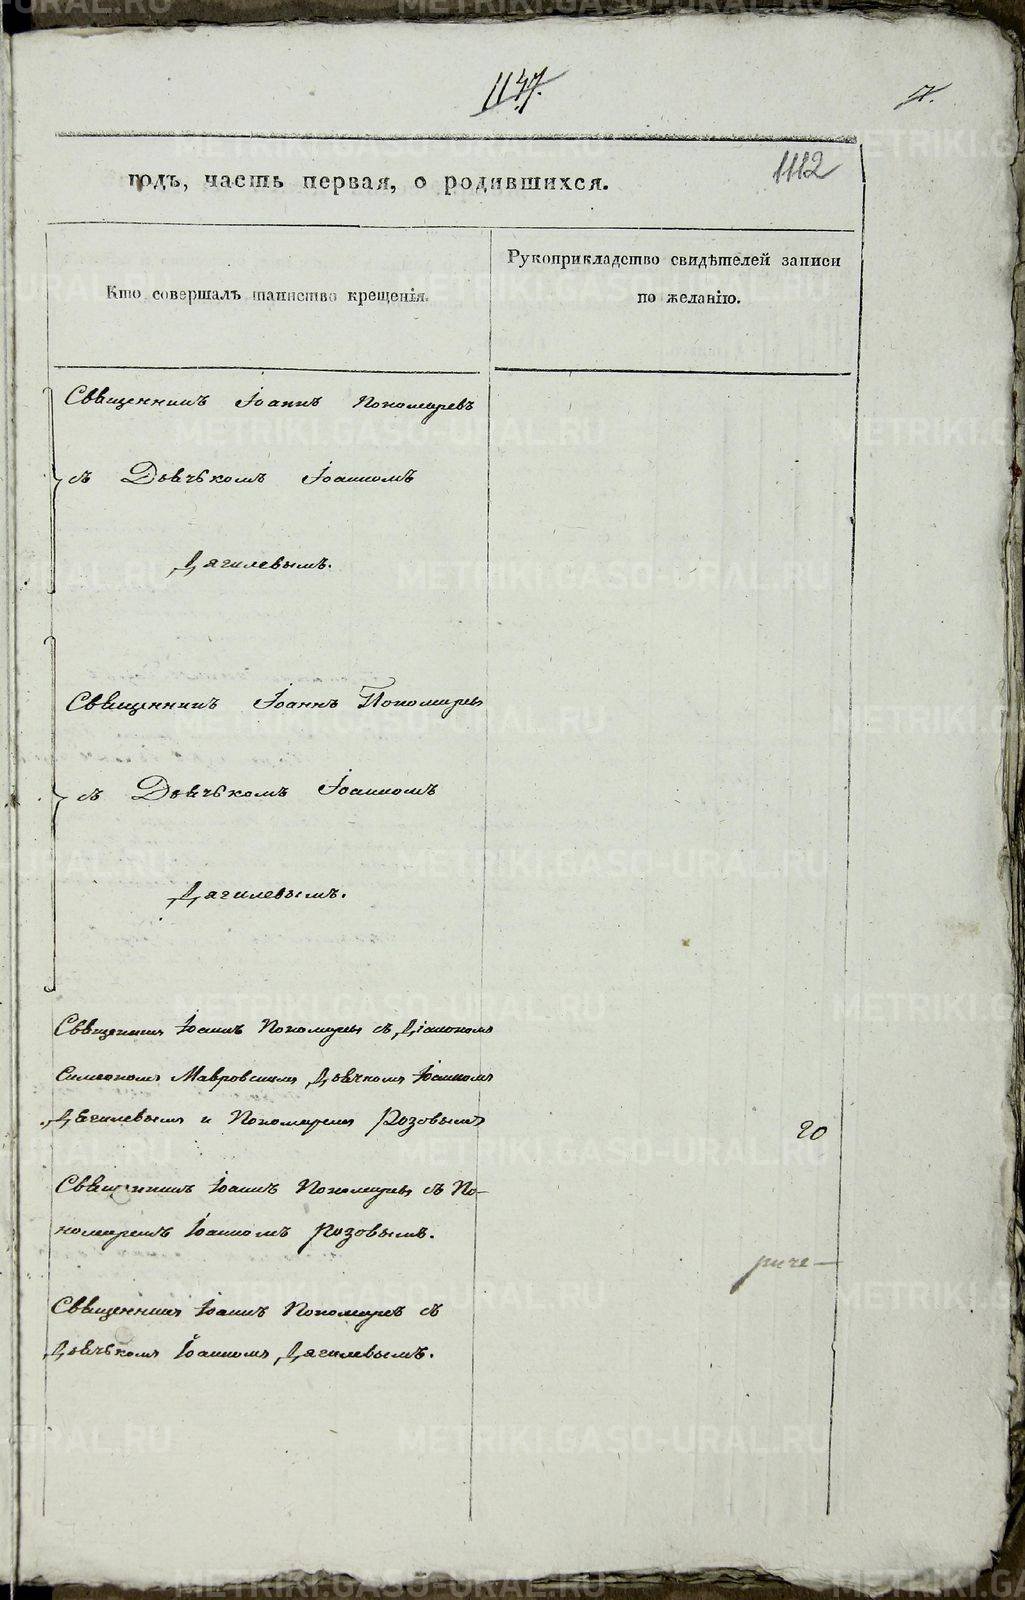 1147.
7.
1112
годъ, часть первая, о родившихся.
Кто совершалъ таинство крещенія.
Рукоприкладство свидѣтелей записи
по желанію.
Священникъ Іоаннъ Пономаревъ
съ Дьячькомъ Іоанномъ
Дягилевымъ.
Священникъ Іоаннъ Пономаревъ
съ Дьячькомъ Іоанномъ
Дягилевымъ.
Священникъ Іоаннъ Пономаревъ съ Діакономъ
Симеономъ Мавровскимъ Дьячкомъ Іоанномъ
Дягилевымъ и Пономаремъ Розовымъ
20
Священникъ Іоаннъ Пономаревъ съ По-
номаремъ Іоанномъ Розовымъ.
Священникъ Іоаннъ Пономаревъ съ
Дьячькомъ Іоанномъ Дягилевымъ.
METRIKI.GASO-URAL.RU